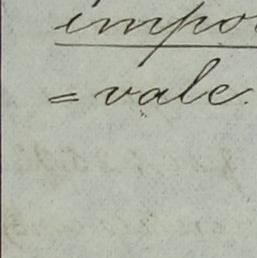 impo
= vale.